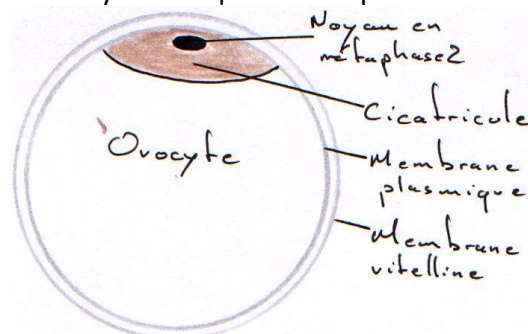 Noyau en
métaphase2
Cicatricule
Ovocyte
Membrane
plasmique
Membrane
vitelline